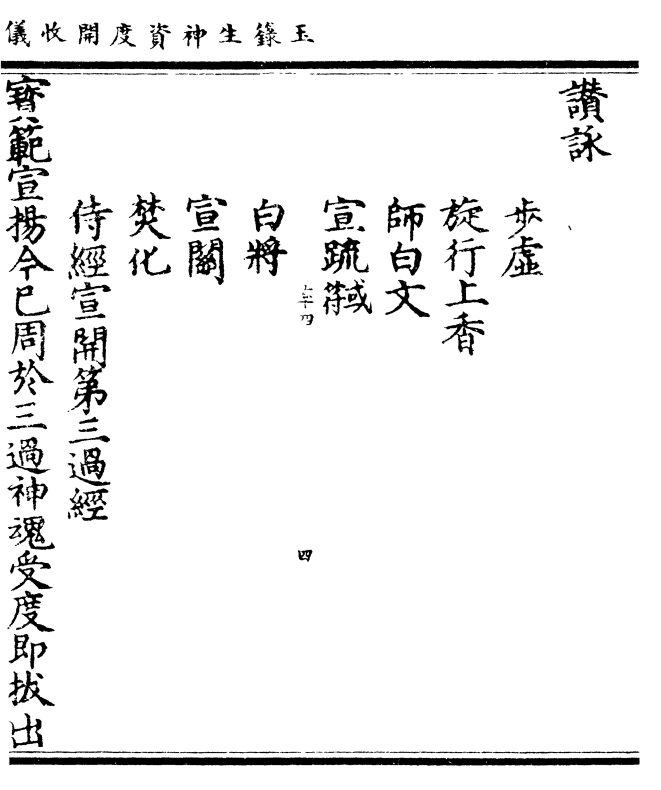 玉籙生神資度開收儀
讚詠
步虛
旋行上香
師白文
宣疏
四
白將
宣關
焚化
侍經宣開第三過經
寶範宣揚今已周於三過神魂受度即拔出